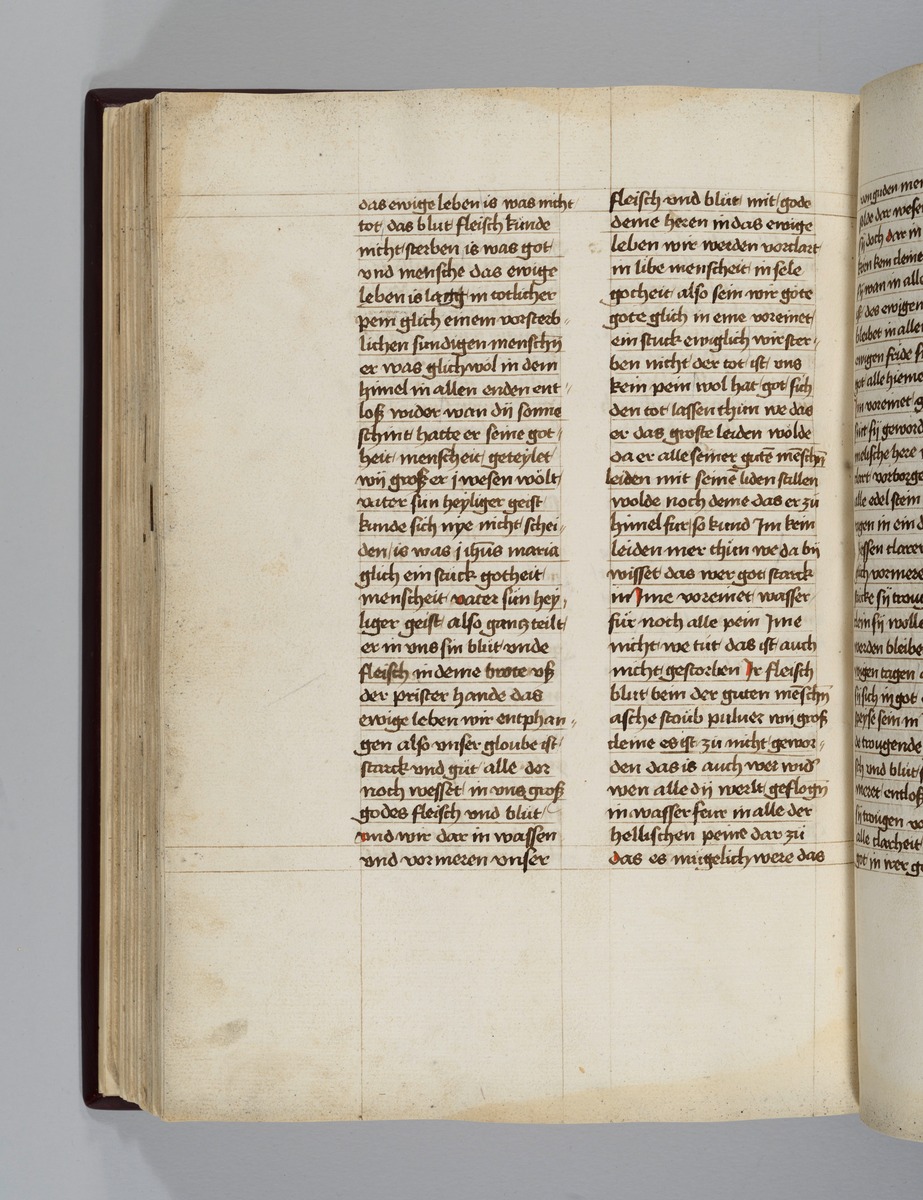 das ewige leben is was nicht
tot / das blut / fleisch kunde
nicht / sterben is was got /
vnd mensche das ewige
leben is lagg in totlicher
pein glich einem vorsterb⸗
lichen sundigen menschij
er was glich wol in dem
himel in allen enden ent⸗
loß wider wan dij sonne
schint / hatte er seine got /
heit / menscheit / geteylet /
wij groß er j wesen wolt /
vater sun heyliger geist /
kunde sich nye nicht / schei⸗
den / is was j ihūs maria
glich ein stuck gotheit /
menscheit / vater sun hey /
liger geist / also gancz teilt /
er in vns sin blut vnde
fleisch in deme brote vß
der prister hande das
ewige leben wir entphan⸗
gen also vnser gloube ist /
starck vnd gut / alle dor
noch wesset / in vns groß
godes fleisch vnd blut /
vnd wir dar in wassen
vnd vormeren vnser
fleisch vnd blut / mit / gode
deme heren in das ewige
leben wir werden vorclart
in libe menscheit / in sele
gotheit / also sein wir gote
gote glich in eine voreinet /
ein stuck ewiglich wir ster⸗
ben nicht / der tot / ist / vns
kein pein wol hat / got / sich
den tot / lassen thun we das
er das groste leiden wolde
da er alle seiner gutē mēschn̄
leiden mit seinē liden stillen
wolde noch deme das er zu
himel fur / so kund Im kein
leiden mer thun we da bij
wisset / das wer got / starck
in Ime voreinet / wasser /
für noch alle pein Ime
nicht / we tut / das ist / auch
nicht / gestorben Ir fleisch
blut / bein der guten mēschn̄
asche stoub puluer wij groß
cleine es ist / zu nicht / gewor⸗
den das is auch wer wid'
wen alle dij werlt / geflogn̄
in wasser feur in alle der
hellischen peine dar zu
das es mugelich were das